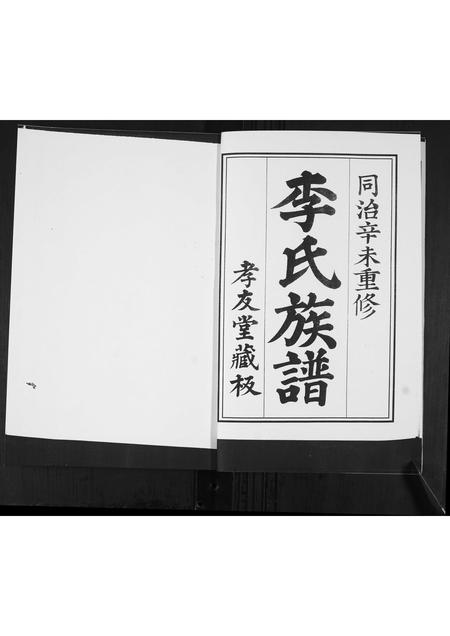 同治辛未重修
李氏族譜
孝友堂藏板